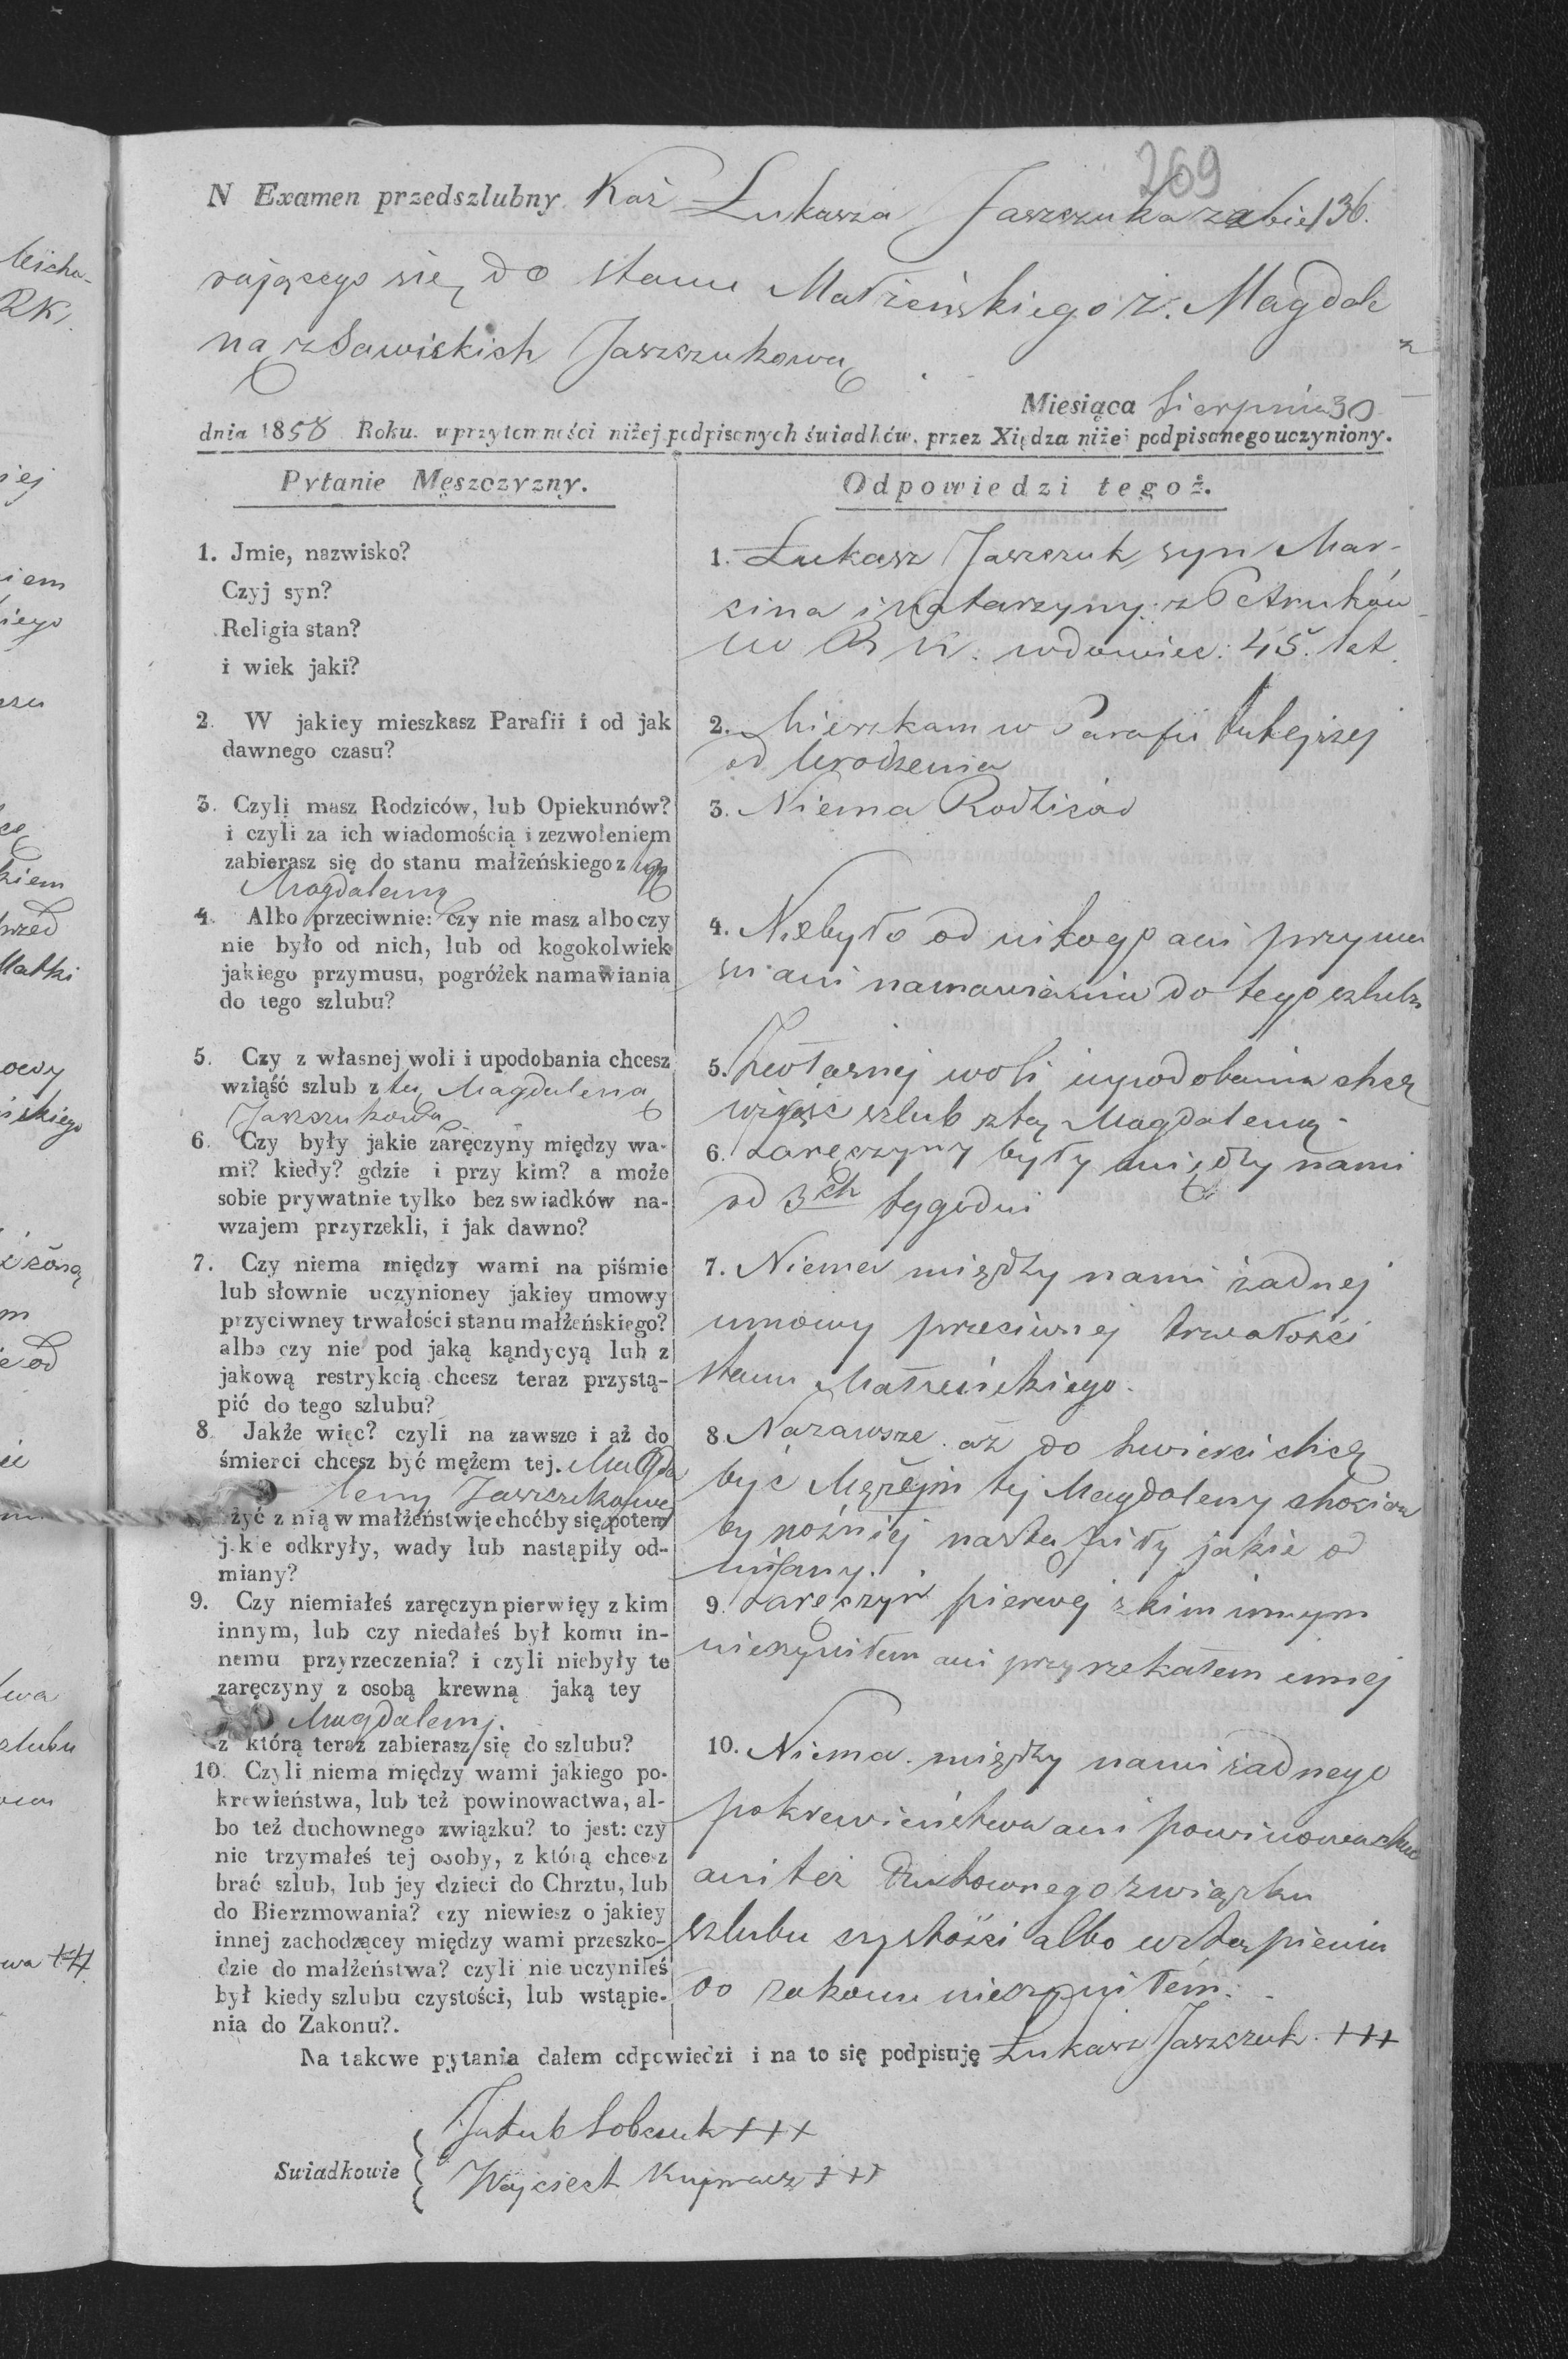 269
N Examen przedszlubny Kaź Łukasza Jaszczuka zabie/136.
rającego się do stanu Małżeńskiego z Magdale
ną z Sawickich Jaszczukową
Miesiąca Sierpnia 30
dnia 1858 Roku. w przytomności niżej podpisanych świadków, przez Xiędza niżej podpisanego uczyniony.
Pytanie Męszczyzny.
1. Jmie, nazwisko?
Czyj syn?
Religia stan?
i wiek jaki?
2. W jakiey mieszkasz Parafii i od jak
dawnego czasu?
3. Czyli masz Rodziców, lub Opiekunów?
i czyli za ich wiadomością i zezwoleniem
zabierasz się do stanu małżeńskiego z tą
Magdaleną
4. Albo przeciwnie: czy nie masz albo czy
nie było od nich, lub od kogokolwiek
jakiego przymusu, pogróżek namawiania
do tego szlubu?
5. Czy z własnej woli i upodobania chcesz
wziąść szlub z tą Magdaleną
Jaszczukową
6. Czy były jakie zaręczyny między wa-
mi? kiedy? gdzie i przy kim? a może
sobie prywatnie tylko bez swiadków na-
wzajem przyrzekli, i jak dawno?
7. Czy niema między wami na piśmie
lub słownie uczynioney jakiey umowy
przyciwney trwałości stanu małżeńskiego?
albo czy nie pod jaką kąndycyą lub z
jakową restrykcią chcesz teraz przystą-
pić do tego szlubu?
8. Jakże więc? czyli na zawsze i aż do
śmierci chcesz być mężem tej. Magda
leny Jaszczukowe
żyć z nią w małżeństwie choćby się potem
jakie odkryły, wady lub nastąpiły od-
miany?
9. Czy niemiałeś zaręczyn pierwięy z kim
innym, lub czy niedałeś był komu in-
nemu przyrzeczenia? i czyli niebyły te
zaręczyny z osobą krewną jaką tey
Magdaleny.
z którą teraz zabierasz się do szlubu?
10. Czyli niema między wami jakiego po-
krewieństwa, lub też powinowactwa, al-
bo też duchownego związku? to jest: czy
nie trzymałeś tej osoby, z którą chcesz
brać szlub, lub jey dzieci do Chrztu, lub
do Bierzmowania? czy niewiesz o jakiey
innej zachodzącey między wami przeszko-
dzie do małżeństwa? czyli nie uczyniłeś
był kiedy szlubu czystości, lub wstąpie-
nia do Zakonu?.
Odpowiedzi tegoż.
1. Łukasz Jaszczuk, syn Mar-
cina i Katarzyny z Petruków
R K. wdowiec: 45. lat
2. Mieszkam w Parafii tutejszej
od Urodzenia
3. Niema Rodziców
4. Niebyło od nikogo ani przymu
su ani namawiania do tego szlubu
5. Zwłasnej woli iupodobania chcę
wziąść szlub ztą Magdaleną-
6. Zaręczyny były między nami
od 3ch tygodni
7. Niema między nami żadnej
umowy przeciwnej trwałości
stanu Małżeńskiego.
8. Nazawsze aż do śmierci chcę
być Mężem tej Magdaleny chociaż
by poźniej nastąpiły jakie od
miany.
9. Zaręczyn pierwej z kim innym
nieczyniłem ani przyrzekałem innej
10. Niema między nami żadnego
pokrewieństwa ani powinowactwa
ani też Duchownego związku
szlubu czystości albo wstąpienia
do zakonu nieczyniłem.
Na takowe pytania dałem odpowiedzi i na to się podpisuję Łukasz Jaszczuk +++
Jakub Sobczuk +++
Swiadkowie
Wojciech +++
Micha-
RK.
iej
iem
iego
kiem
przed
Matki
skiego
m
ie od
szlubu
wa +++